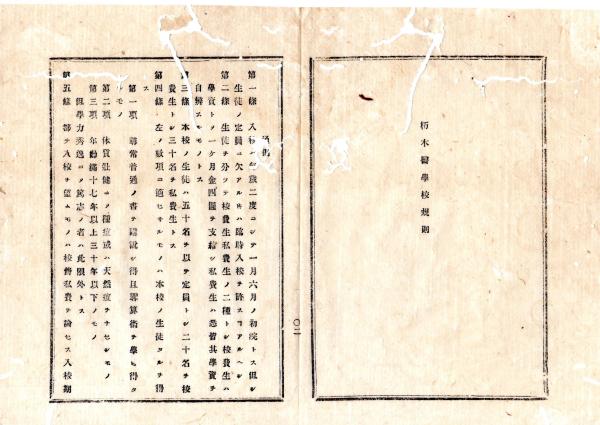 栃木醫學校規則
〇二
通則
第一條 入校ハ毎歳二度ニシテ一月六月ノ初旬トス但シ
生徒ノ定員ニ欠アルキハ臨時入校ヲ許スヿアルヘシ
第二條 生徒ヲ分ツテ校費生私費生ノ二種トシ校費生ハ
學資トノ一ケ月金四圓ヲ支給シ私費生ハ悉皆其學資ヲ
自辨スルモノトス
第三條 本校ノ生徒ハ五十名ヲ以テ定員トシ二十名ヲ校
費生トシ三十名ヲ私費生トス
第四條 左ノ数項ニ適セサルモノハ本校ノ生徒タルヲ得
ス
第一項 尋常普通ノ書ヲ 得且 算術ヲ學ヒ得タ
ルモノ
第二項 体質壮健ニノ種痘或ハ天然痘ヲナセシモノ
第三項 年齢滿十七年以上三十年以下ノモノ
但學力秀逸ニノ篤志ノ者ハ此限外トス
第五條 都テ入校ヲ望ムモノハ校費私費ヲ論セス入校期